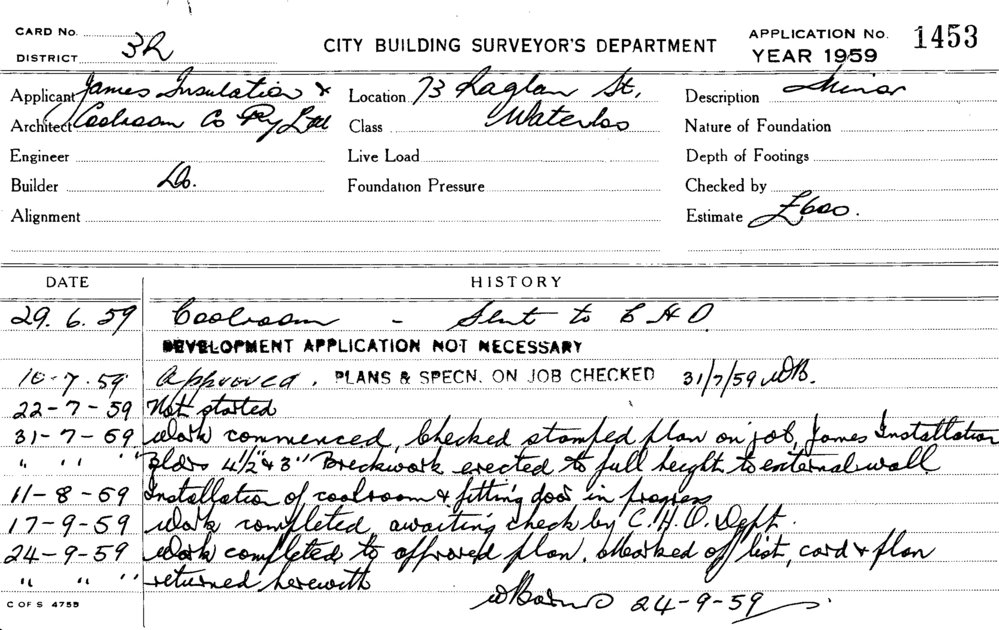 CARD No.
DISTRICT 3R
CITY BUILDING SURVEYOR'S DEPARTMENT
APPLICATION No. 1453
YEAR 1959
Applicant James Insulation &
Architect Coolroom Co Pty Ltd
Engineer
Builder Do.
Alignment
Location 73 Raglan St,
Class Waterloo
Live Load
Foundation Pressure
Description Minor
Nature of Foundation
Depth of Footings
Checked by
Estimate £600.
DATE HISTORY
29.6.59 Coolroom - Sent to C H O.
DEVELOPMENT APPLICATION NOT NECESSARY
10-7-59 Approved. PLANS & SPECN. ON JOB CHECKED 31/7/59 WB.
22-7-59 Not started
31-7-59 Work commenced, Checked stamped plan on job, James Installation
" " " Bldrs 4½" & 3" Brickwork erected to full height to external wall
11-8-59 Installation of coolroom & fitting door in progress
17-9-59 Work completed, awaiting check by C.H.O. Dept.
24-9-59 Work completed to approved plan. Marked off list, card & plan
" " " returned herewith
24-9-59
C OF S 4755